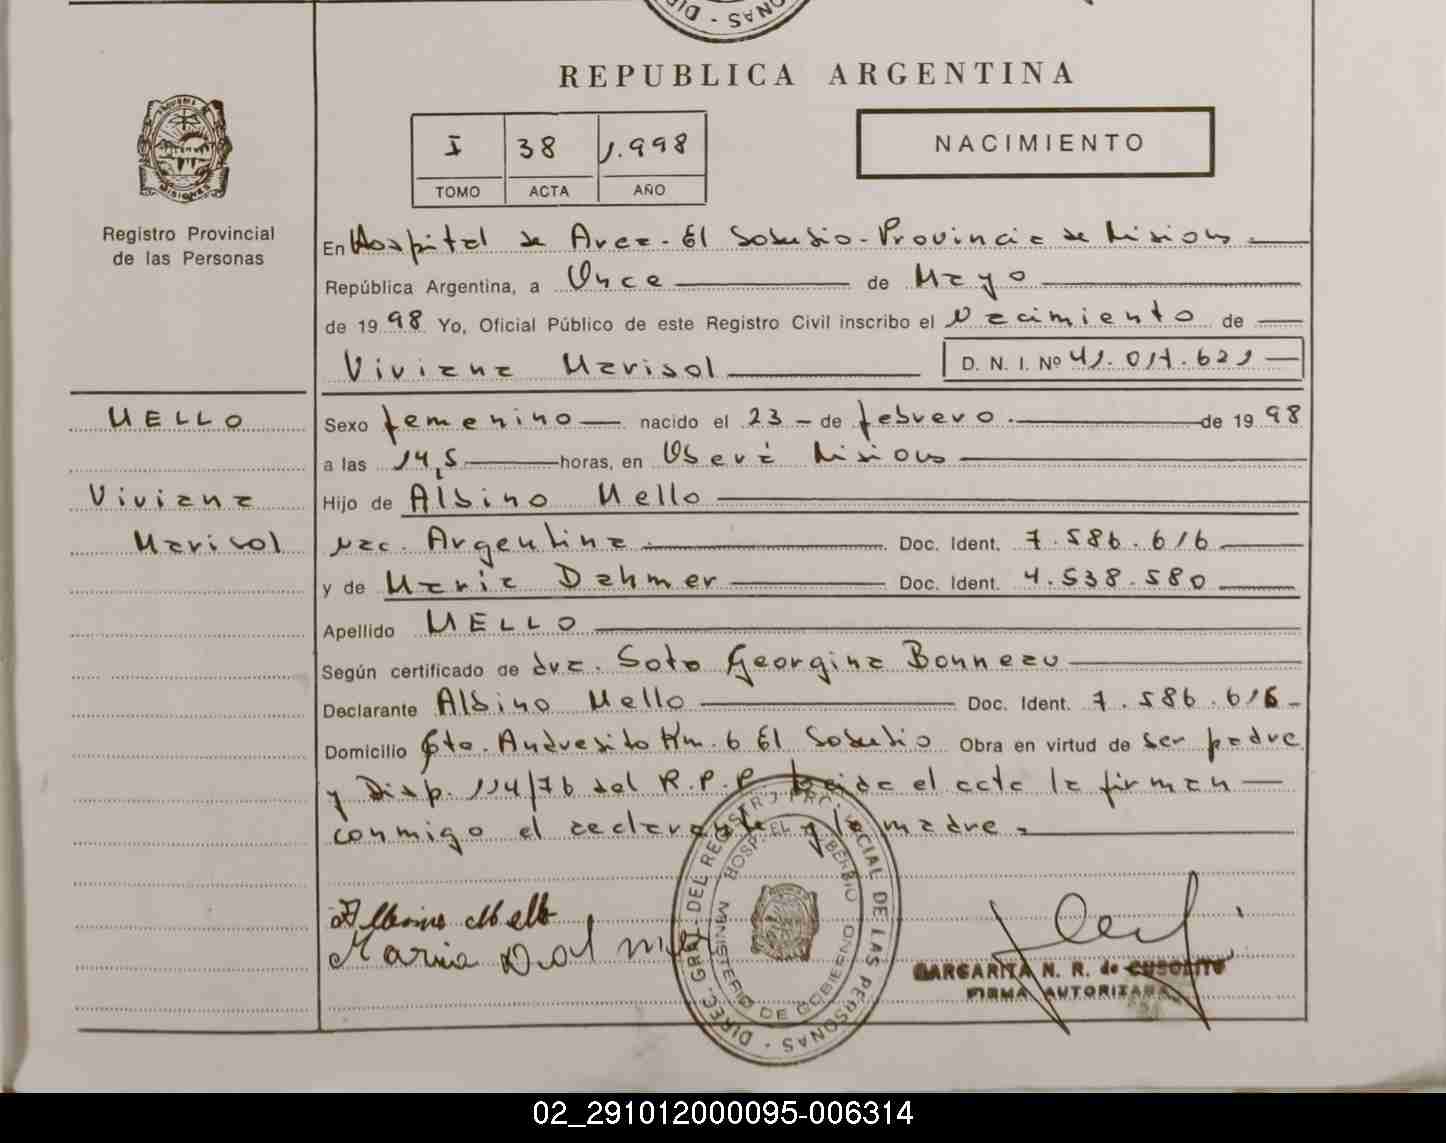 REPUBLICA ARGENTINA
I 38 1.998
TOMO ACTA AÑO
NACIMIENTO
Registro Provincial
de las Personas
En Hospital de Area - El Soberbio - Provincia de Misiones
República Argentina, a Once de Mayo
de 1998 Yo, Oficial Público de este Registro Civil inscribo el Nacimiento de
Viviana Marisol D. N. I. Nº 41.017.621
MELLO
Viviana
Marisol
Sexo femenino nacido el 23 - de febrero de 1998
a las 14,5 horas, en Oberá Misiones
Hijo de Albino Mello
nac. Argentina Doc. Ident. 7.586.616
y de Maria Dahmer Doc. Ident. 4.538.580
Apellido MELLO
Según certificado de dra. Soto Georgina Bonneau
Declarante Albino Mello Doc. Ident. 7.586.616 -
Domicilio Pto. Andresito Km. 6 El Soberbio Obra en virtud de ser padre
y Disp. 114/76 del R.P.P. Leida el acta la firman
conmigo el declarante y la madre.
Albino Mello
Maria Dahmer
DIREC. GRAL. DEL REGISTRO PROVINCIAL DE LAS PERSONAS
HOSP. EL SOBERBIO
MINISTERIO DE GOBIERNO
MARGARITA N. R. de
FIRMA AUTORIZADA
02_291012000095-006314